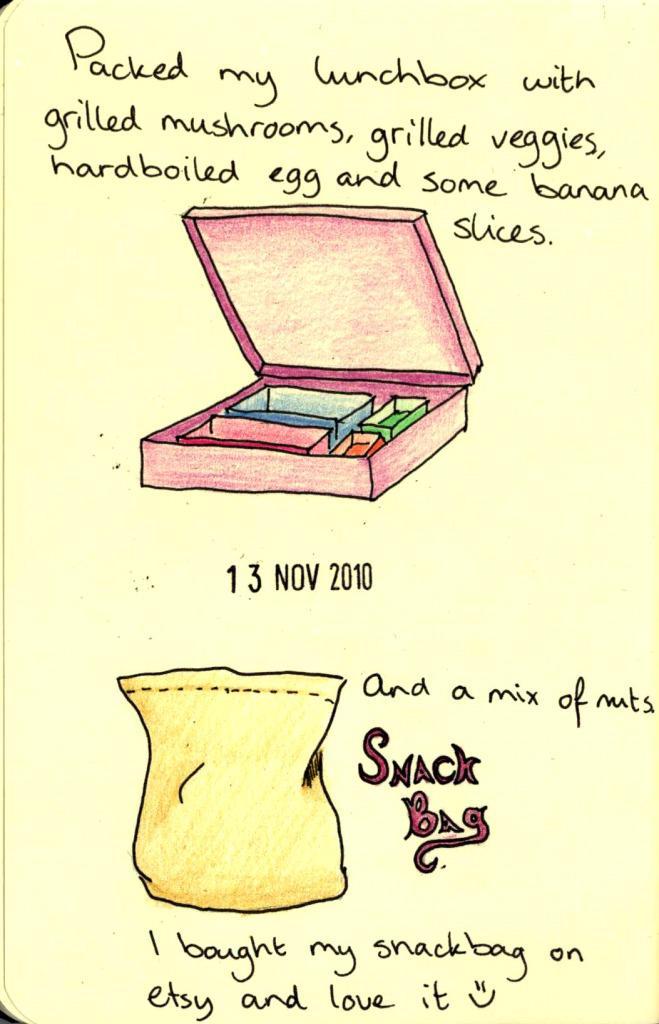 Packed my lunchbox with
grilled mushrooms, grilled veggies,
hardboiled egg and some banana
slices.
13 NOV 2010
And a mix of nuts.
SNACK
BAG
I bought my snackbag on
etsy and love it